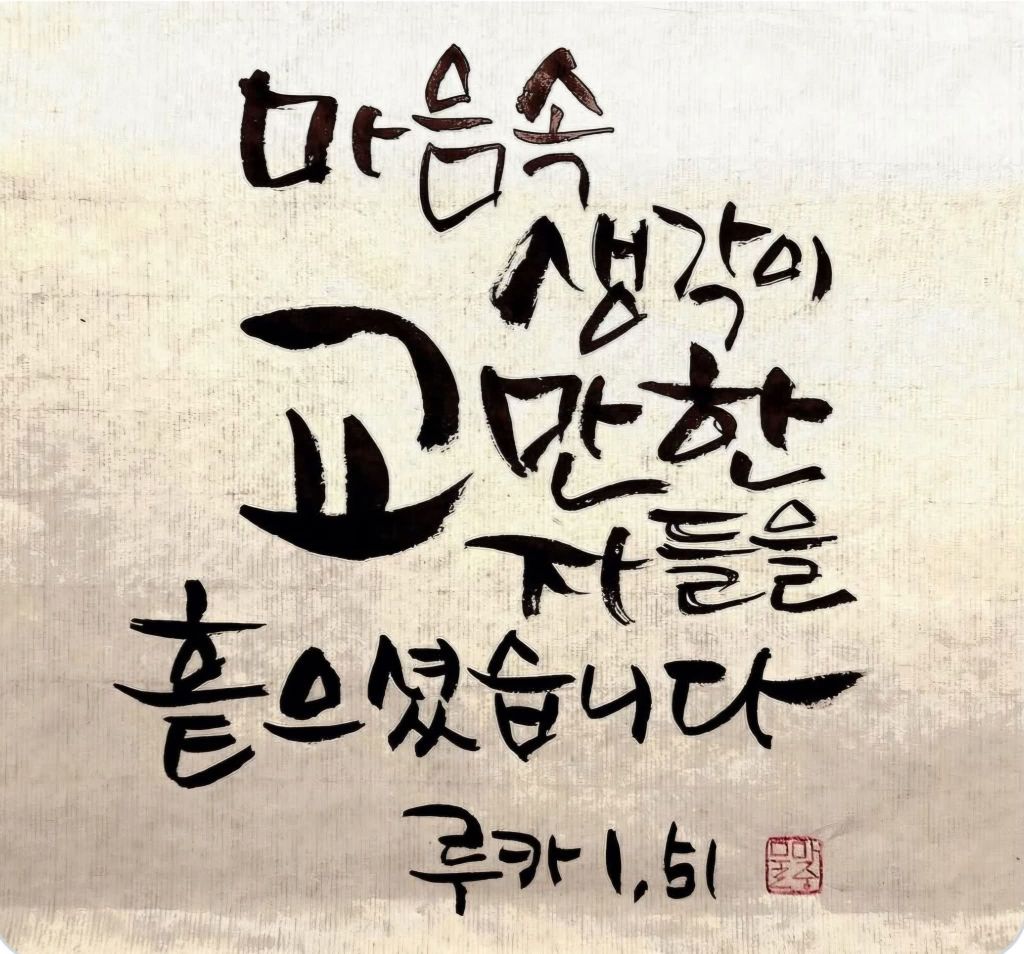 마음속
생각이
교만한
자들을
흩으셨습니다
루카 1,51